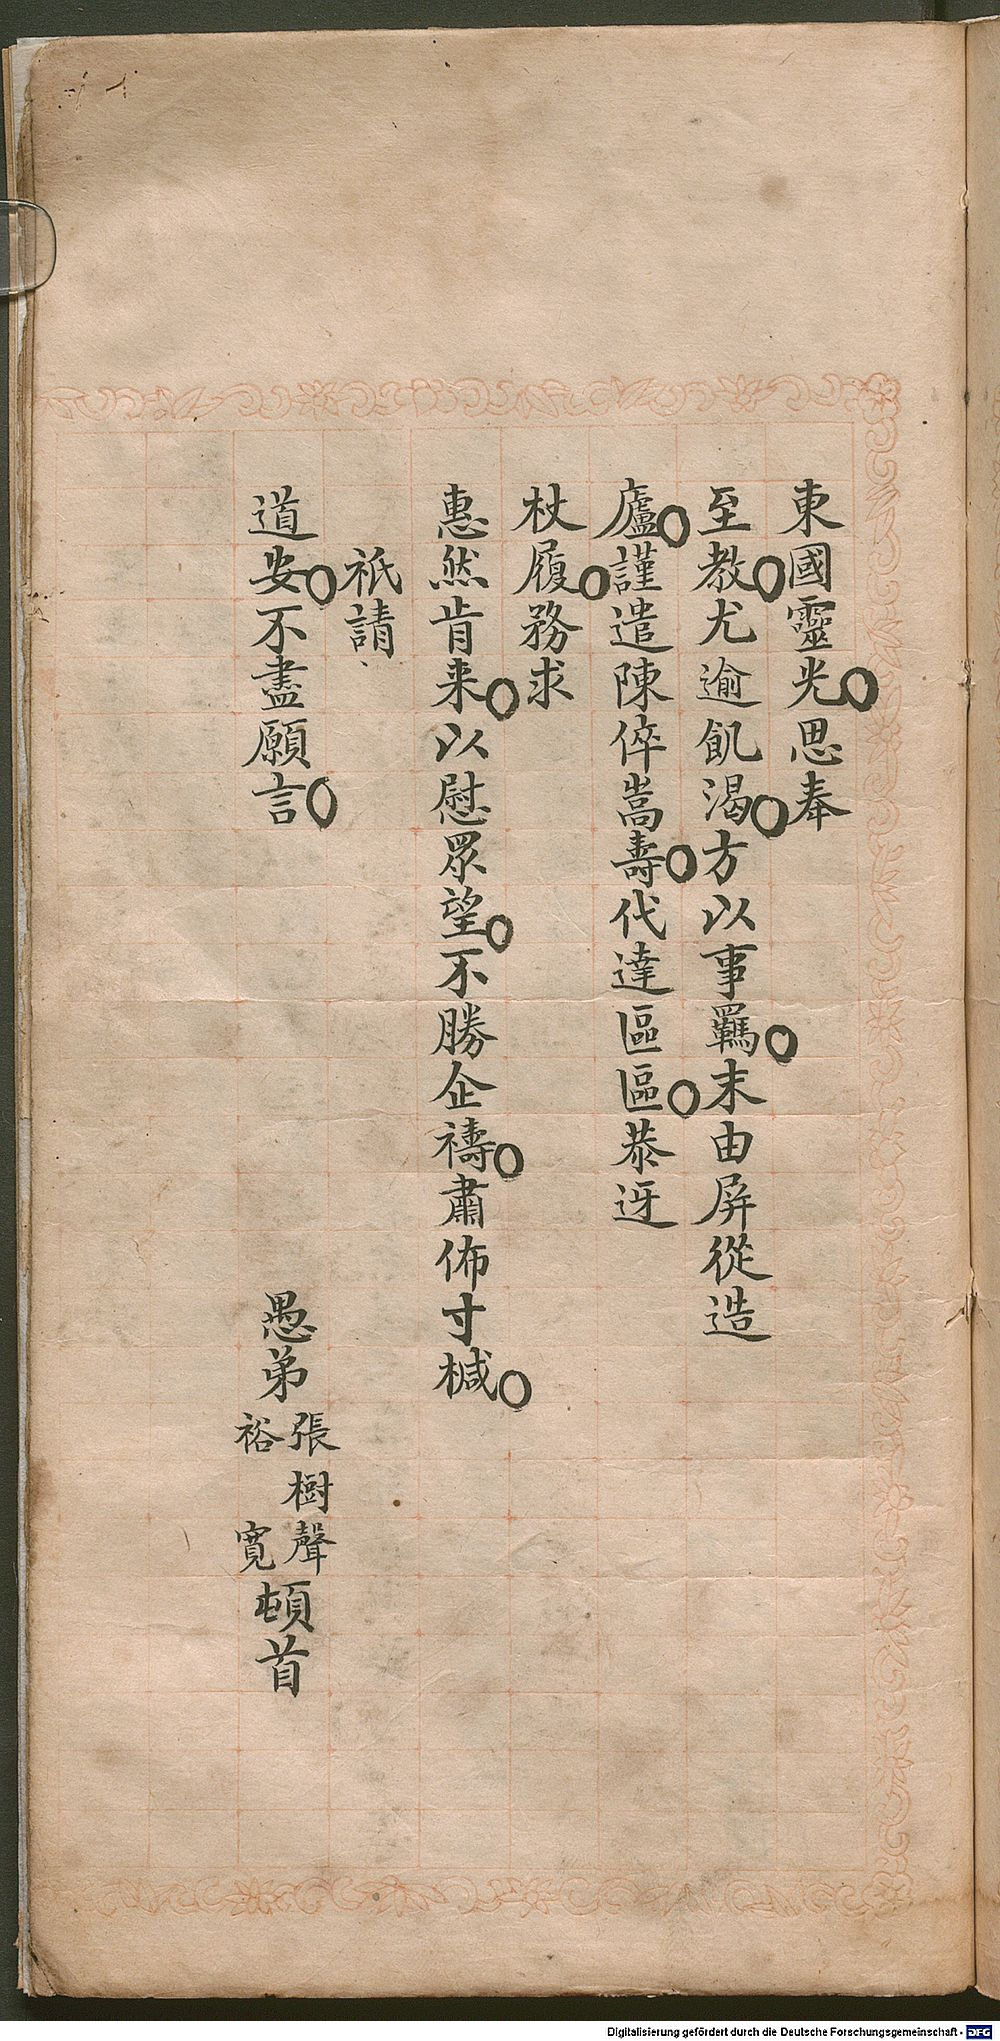 東國靈光思奉
至教尤逾飢渴方以事羈末由屏從造
廬謹遣陳倅嵩壽代達區區恭迓
杖履務求
惠然肯来以慰眾望不勝企禱肅佈寸椷
祇請
道安不盡願言
愚弟張樹聲裕寬頓首
Digitalisierung gefördert durch die Deutsche Forschungsgemeinschaft - DFG